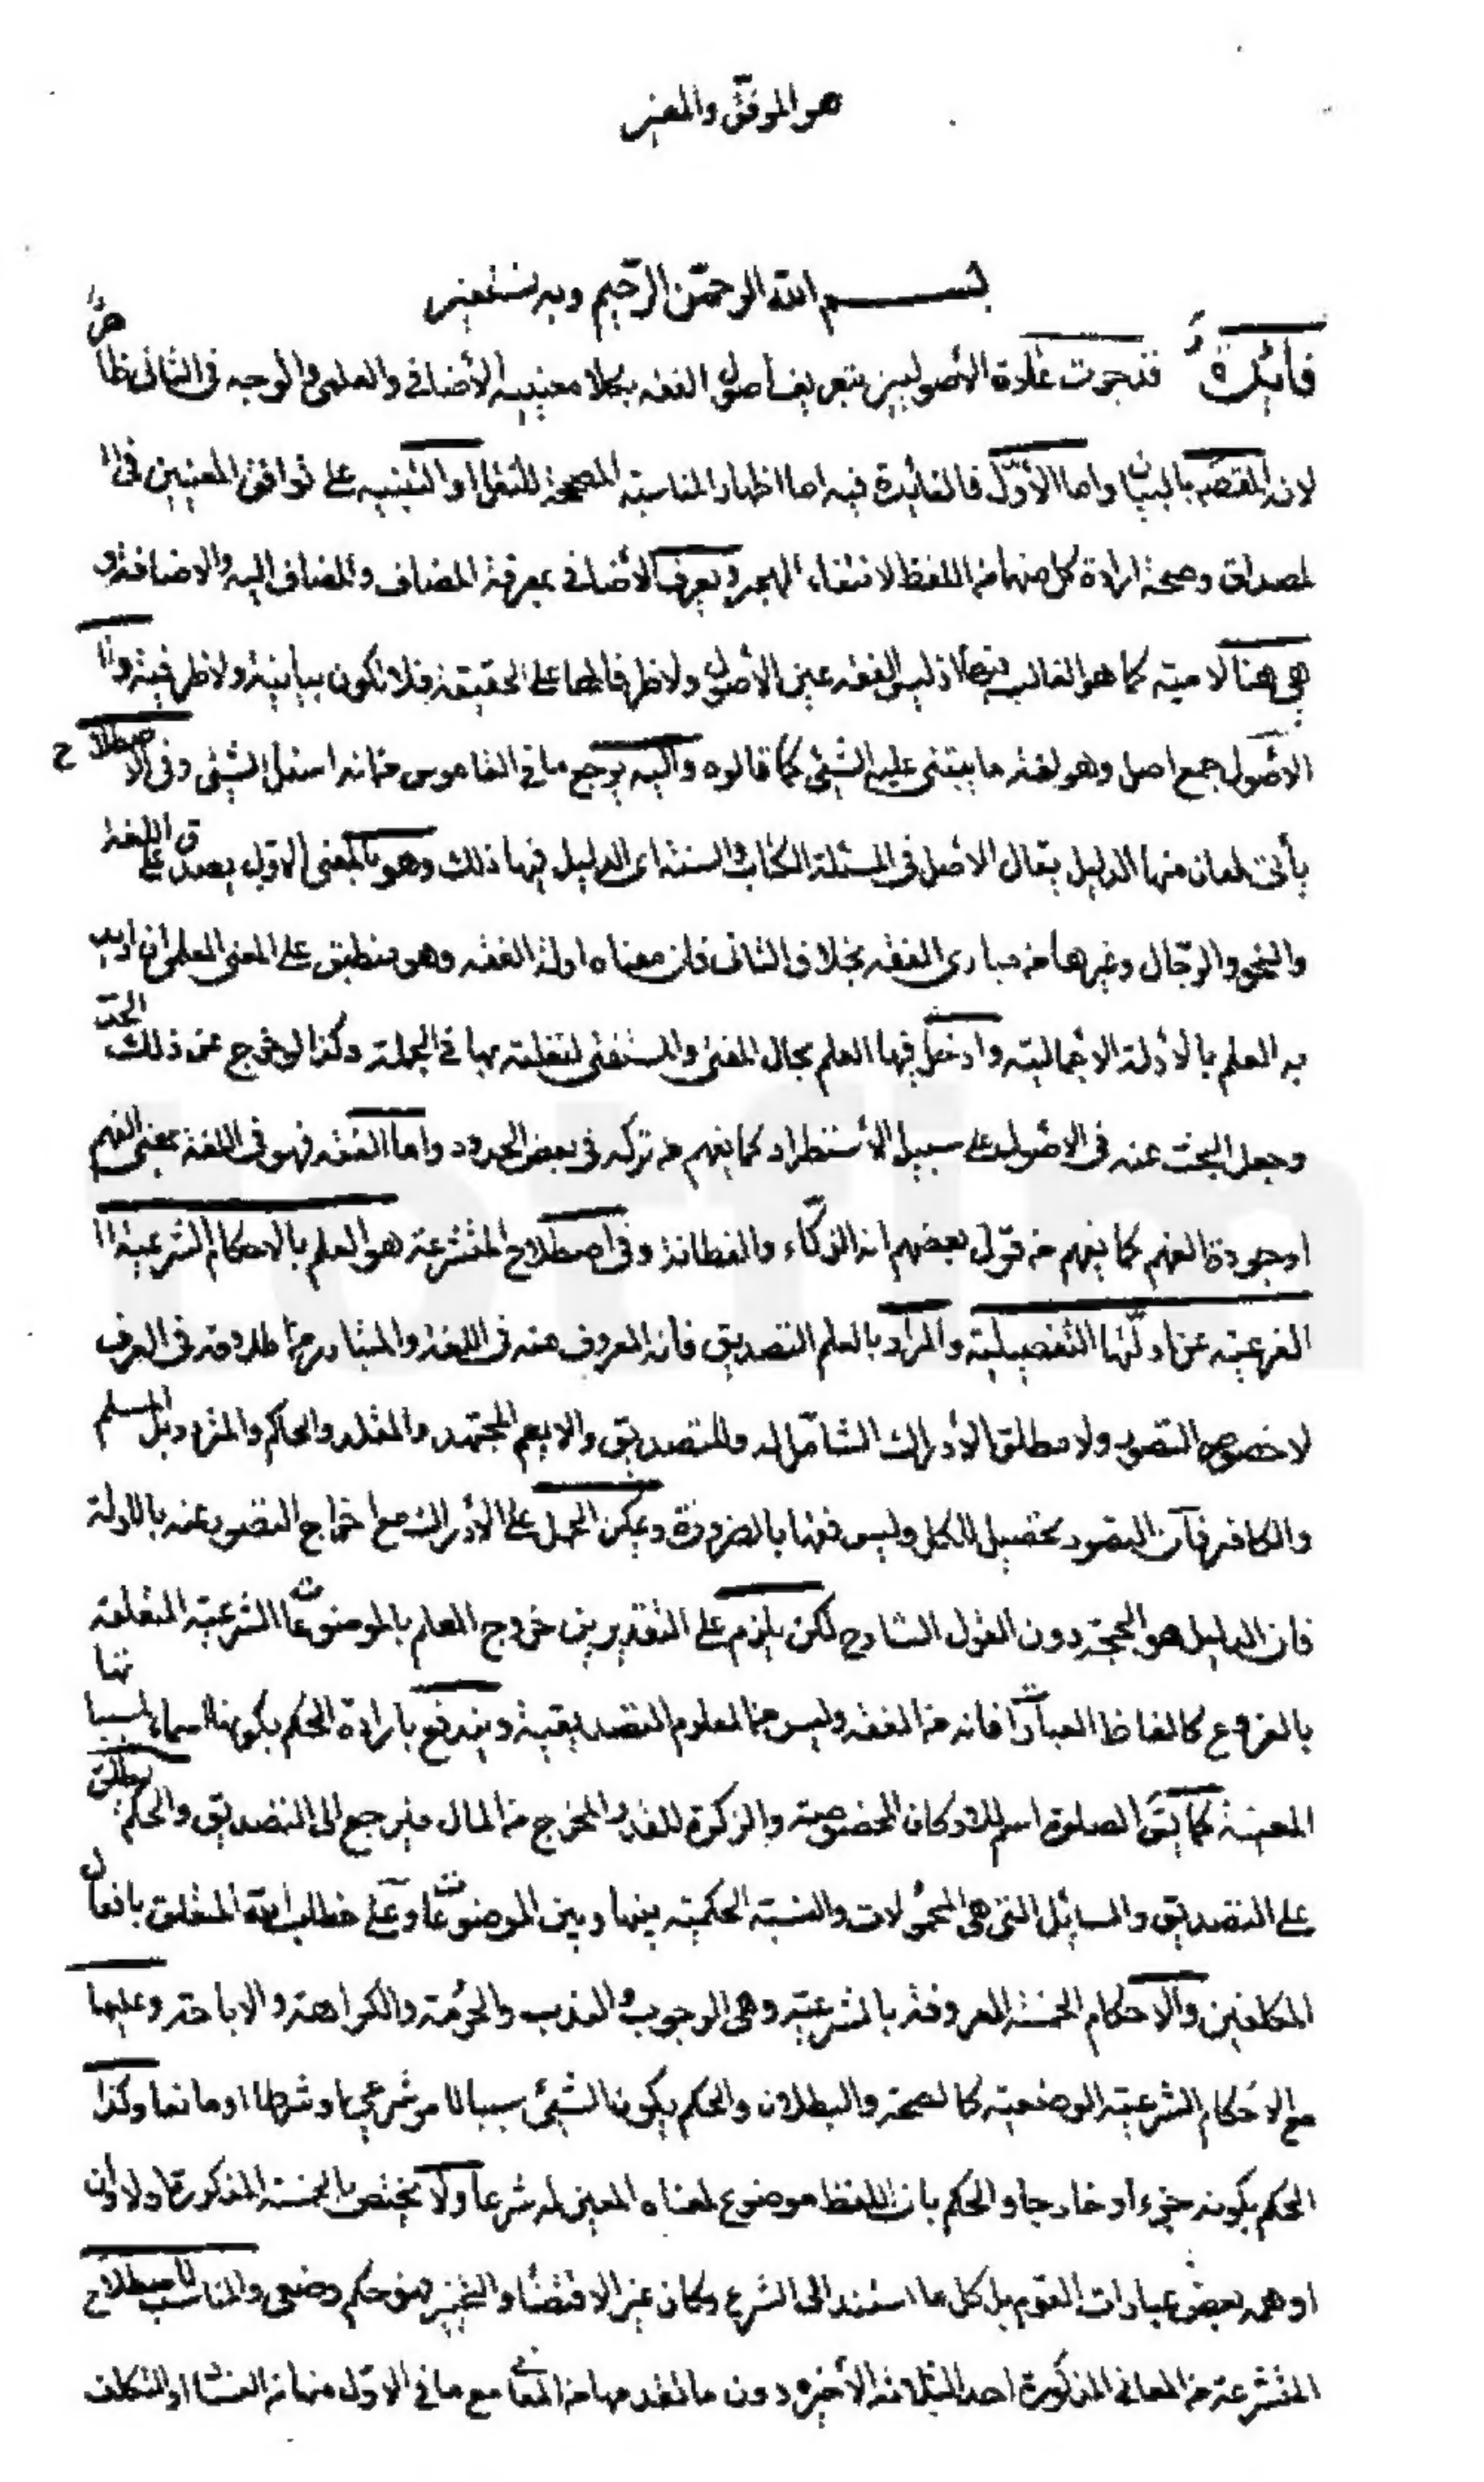 هو الموفق والمعين
بسم الله الرحمن الرحيم وبه نستعين
فائدة قد جرت عادة الأصوليين بتعريف أصول الفقه بكلا معنييه الأضافي والعلمي والوجه في الثاني ظاهر
لانه المقصود بالبيان واما الأول فالفائدة فيه اما اظهار المناسبة المصححة للنقل او التنبيه على توافق المعنيين في ا
لمصداق وصحة ارادة كل منهما من اللفظ لانتفاء الهجر ويعرف الأضافي بمعرفة المضاف والمضاف اليه والاضافة و
هي هنا لامية كما هو الغالب فيها اذ ليس الفقه عين الأصول ولا ظرفا لها على الحقيقة فلا تكون بيانية ولا ظرفية واا
الأصول جمع اصل وهو لغة ما يبتنى عليه الشيء كما قالوه واليه يرجع ما في القاموس من انه اسفل الشيء وفي الاصطلاح
يأتي لمعان منها الدليل يقال الاصل في المسئلة الكتاب والسنة اي الدليل فيها ذلك وهو بالمعنى الاول يصدق على اللغة
والنحو والرجال وغيرها من مبادي الفقه بخلاف الثاني فان معناه ادلة الفقه وهو منطبق على المعنى العلمي ان اريد
به العلم بالأدلة الاجمالية وادخل فيها العلم بحال المفتي والمستفتي لتعلقه بها في الجملة وكذا لو خرج عن ذلك الحد
وجعل البحث عنه في الاصول على سبيل الأستطراد كما يفهم من تركه في بعض الحدود واما الفقه فهو في اللغة بمعنى الفهم
او جودة الفهم كما يفهم من قول بعضهم انه الذكاء والفطانة وفي اصطلاح المتشرعة هو العلم بالاحكام الشرعية ا
الفرعية عن ادلتها التفصيلية والمراد بالعلم التصديق فانه المعروف منه في اللغة والمتبادر من اطلاقه في العرف
لا خصوص التصور ولا مطلق الأدراك الشامل له وللتصديق والا يعم المجتهد والمقلد والحاكم والمتردد بل المسلم
والكافر فان التصور يحصل للكل وليس فقها بالضرورة ويمكن الحمل على الأدراك مع اخراج التصور عنه بالادلة
فان الدليل هو الحجة دون القول الشارح لكن يلزم على التقديرين خروج العلم بالموضوعات الشرعية المتعلقة
بالفروع كالفاظ العبادات فانه من الفقه وليس من العلوم التصديقية ويندفع بارادة الحكم بكونها اسماء لمسمياتها
المعينة كما يق الصلوة اسم للاركان المخصوصة والزكوة للقدر المخرج من المال فيرجع الى التصديق والحكم يطلق
على التصديق والمسائل التي هي المحمولات والنسبة الحكمية بينها وبين الموضوعات وعلى خطاب الله المتعلق بافعال
المكلفين والاحكام الخمسة المعروفة بالشرعية وهي الوجوب والندب والحرمة والكراهة والاباحة وعليها
مع الأحكام الشرعية الوضعية كالصحة والبطلان والحكم بكون الشيء سببا لامر شرعي او شرطا او مانعا وكذا
الحكم بكونه جزء او خارجا والحكم بان اللفظ موضوع لمعناه المعين له شرعا ولا يختص بالخمسة المذكورة اولا وان
اوهمه بعض عبارات القوم بل كل ما استند الى الشرع وكان غير الاقتضاء والتخيير فهو حكم وضعي والمناسب لاصطلاح
المتشرعة من المعاني المذكورة احد الثلاثة الأخيرة دون ما تقدمها من المعاني مع ما في الاول منها من الفساد او التكلف